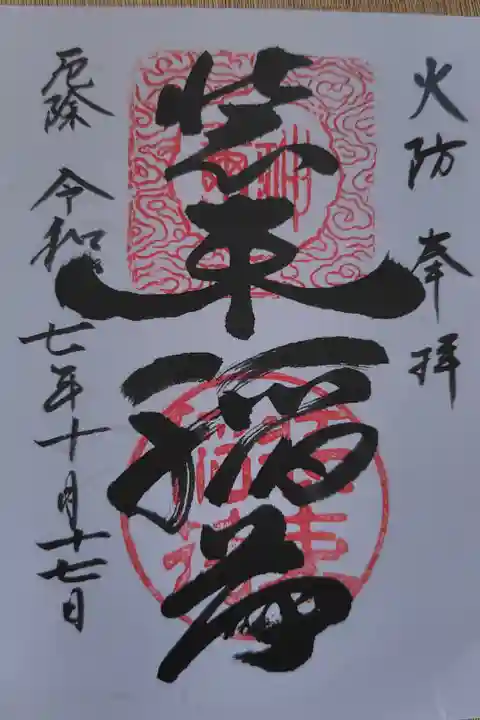 火防 奉拝
装束稲荷
厄除 令和七年十月十七日